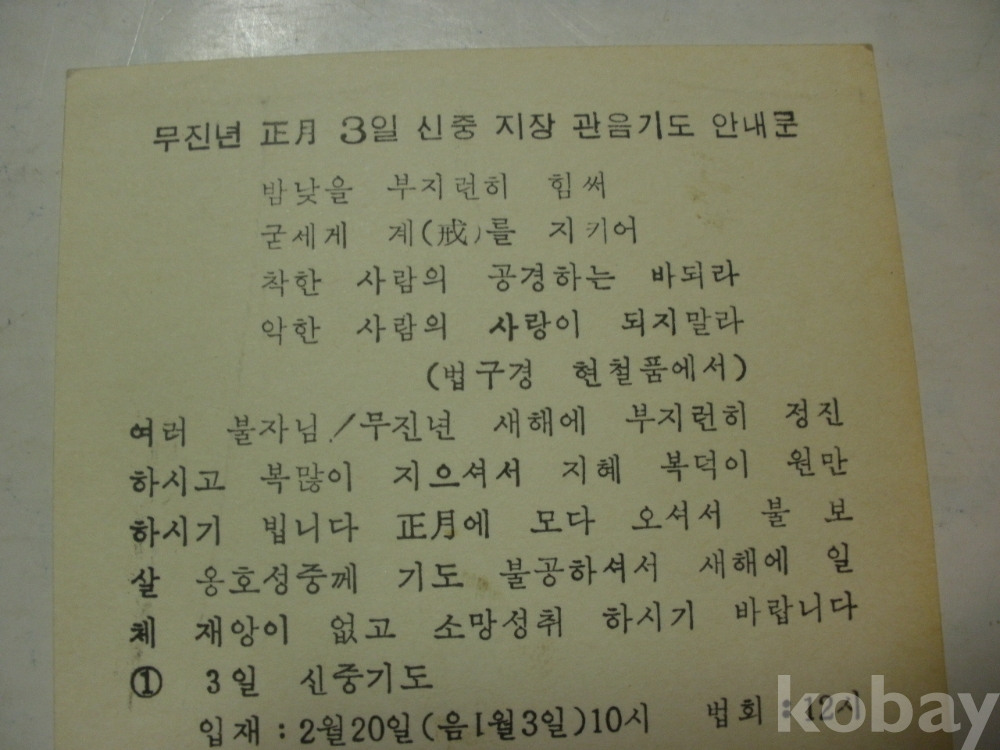 무진년 正月 3일 신중 지장 관음기도 안내문
밤낮을 부지런히 힘써
굳세게 계(戒)를 지키어
착한 사람의 공경하는 바되라
악한 사람의 사랑이 되지말라
(법구경 현철품에서)
여러 불자님/무진년 새해에 부지런히 정진
하시고 복많이 지으셔서 지혜 복덕이 원만
하시기 빕니다 正月에 모다 오셔서 불 보
살 옹호성중께 기도 불공하셔서 새해에 일
체 재앙이 없고 소망성취 하시기 바랍니다
① 3일 신중기도
입재 : 2월20일(음1월3일)10시 법회 : 12시
kobay